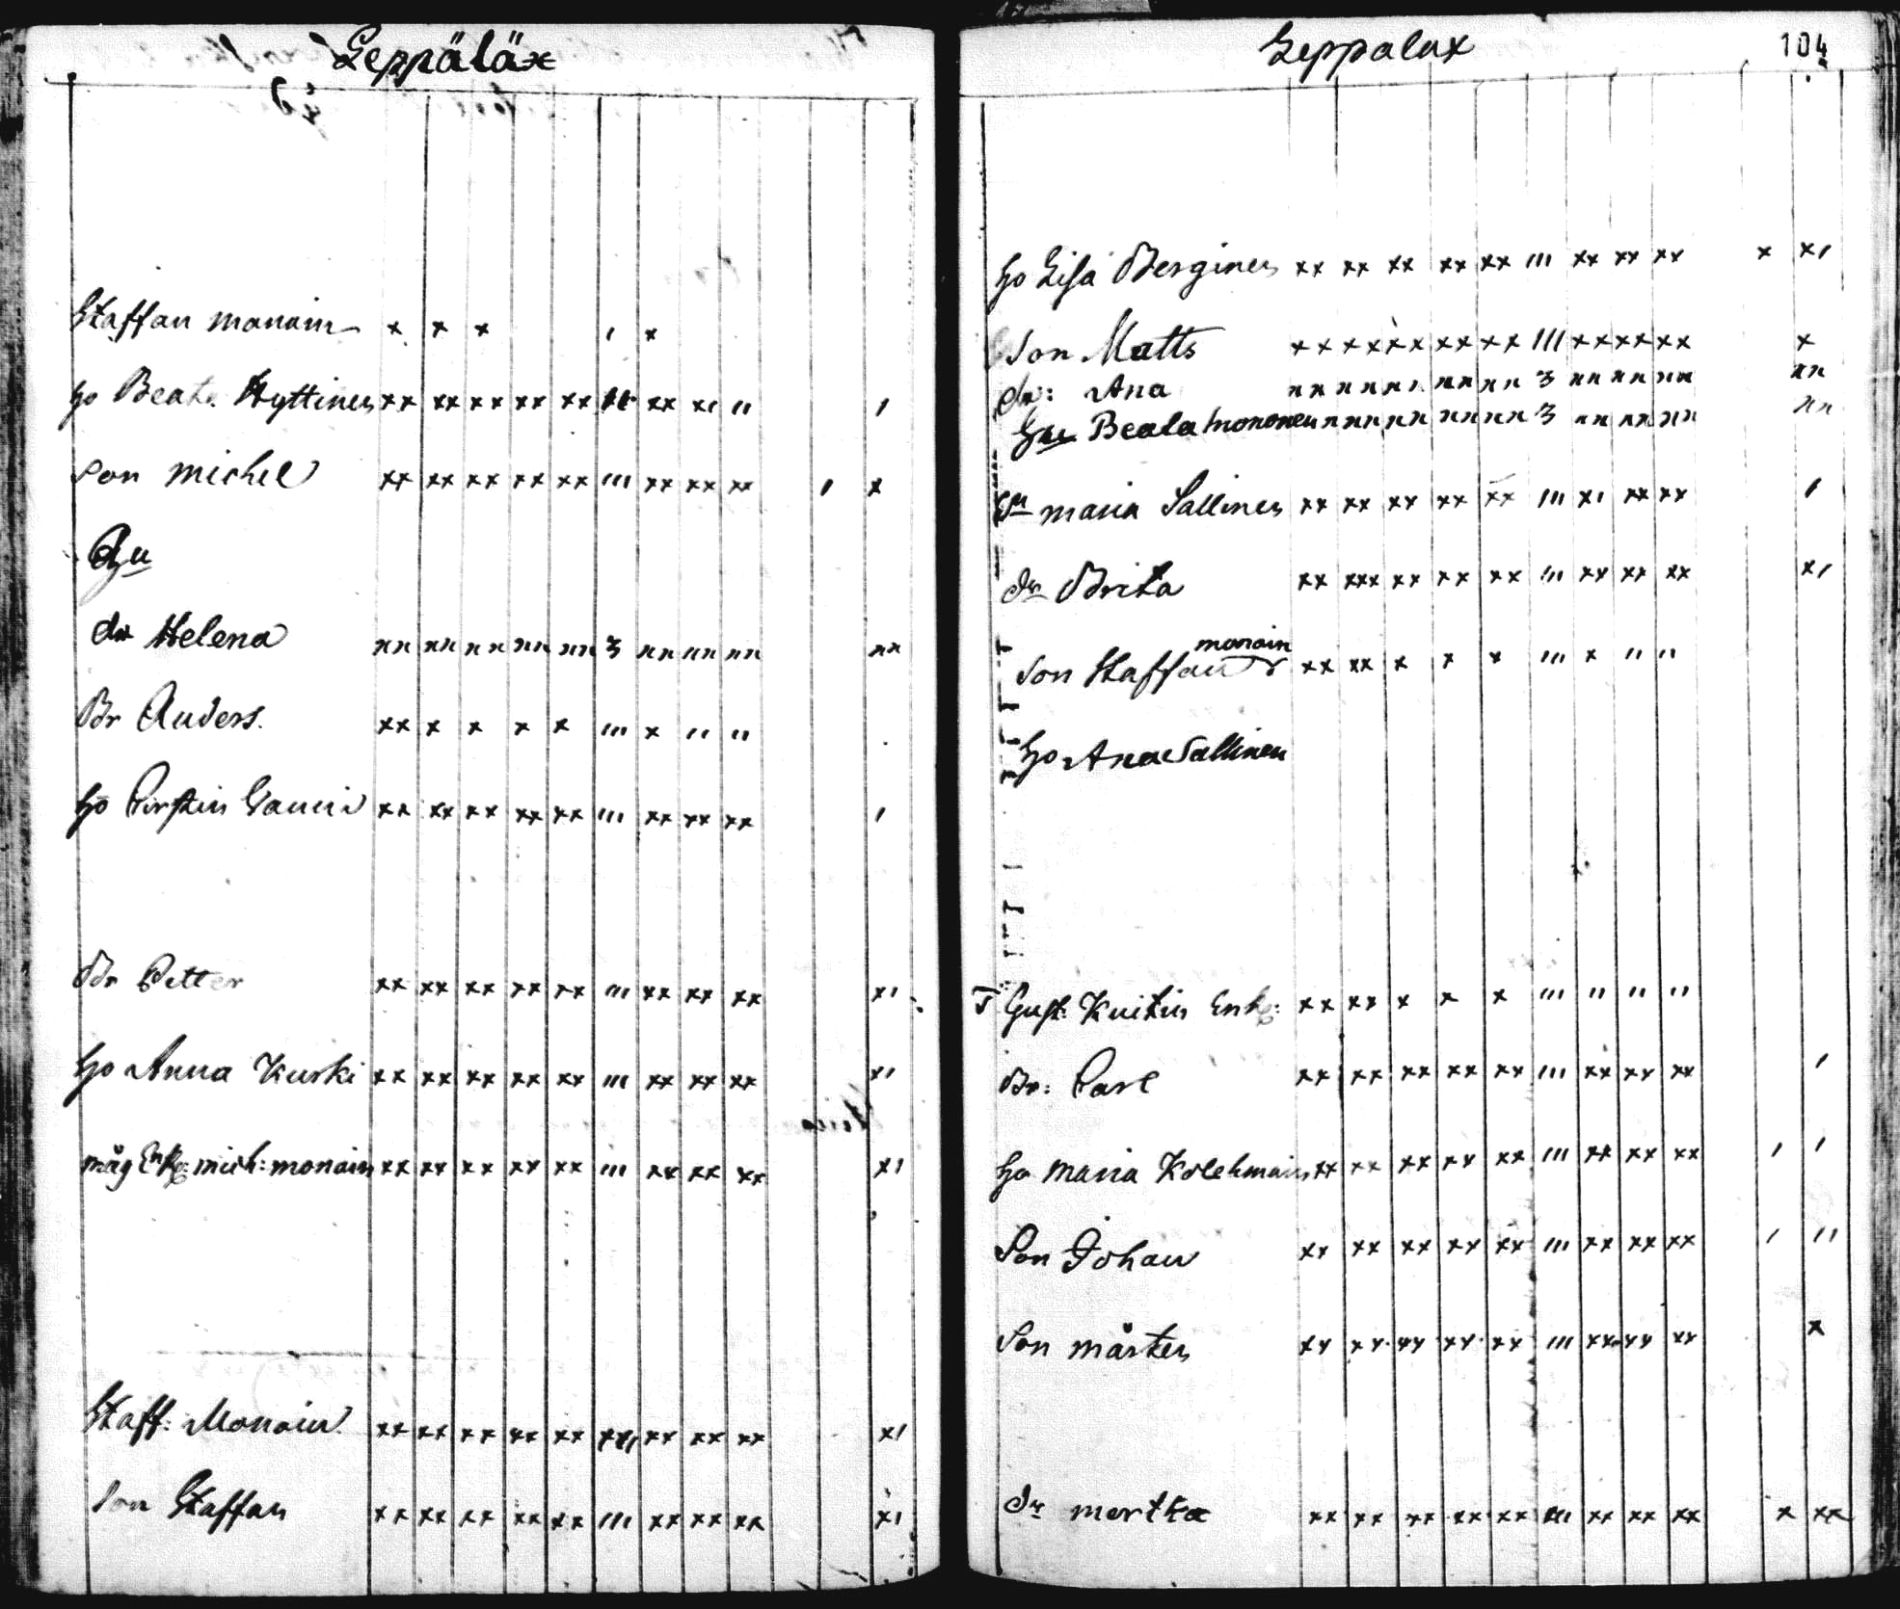 Leppäläx
Staffan monain x x x ı x
ho Beata Hyttinen xx xx xx xx xx xx xı ıı ı
Son michel xx xx xx xx xx ııı xx xx xx ı x
dr Helena nn nn nn nn nn 3 nn nn nn nn
Br Anders. xx x x x x ııı x ıı ıı
ho Kirstin xx xx xx xx xx ııı xx xx xx ı
Br Petter xx xx xx xx xx ııı xx xx xx xı
ho Anna Kurki xx xx xx xx xx ııı xx xx xx xı
måg Enkg: mich: monain xx xx xx xx xx ııı xx xx xx xı
Staff: Monain xx xx xx xx xx xx xx xx xı
Son Staffan xx xx xx xx xx ııı xx xx xx xı
Leppalax 104
ho Lisa xx xx xx xx xx ııı xx xx xx x xı
Son Matts xx xx xx xx xx ııı xx xx xx x
dr: Ana nn nn nı nn nn 3 nn nn nn nn
Beata mononen nn nn nn nn nn 3 nn nn nn nn
maria Sallinen xx xx xx xx xx ııı xı xx xx ı
dr Brita xx xxx xx xx xx ııı xx xx xx xı
monain
Son Staffan xx xx x x x ııı x ıı ıı
ho Ana Sallinen
Gust: Kuitin Enkg: xx xx x x x ııı ıı ıı ıı
Br: Carl xx xx xx xx xx ııı xx xx xx ı
ho maria Kolehmain xx xx xx xx xx ııı xx xx xx ı ı
Son Johan xx xx xx xx xx ııı xx xx xx ı ıı
Son mårten xx xx xx xx xx ııı xx xx xx x
dr mertta xx xx xx xx xx ııı xx xx xx x xx